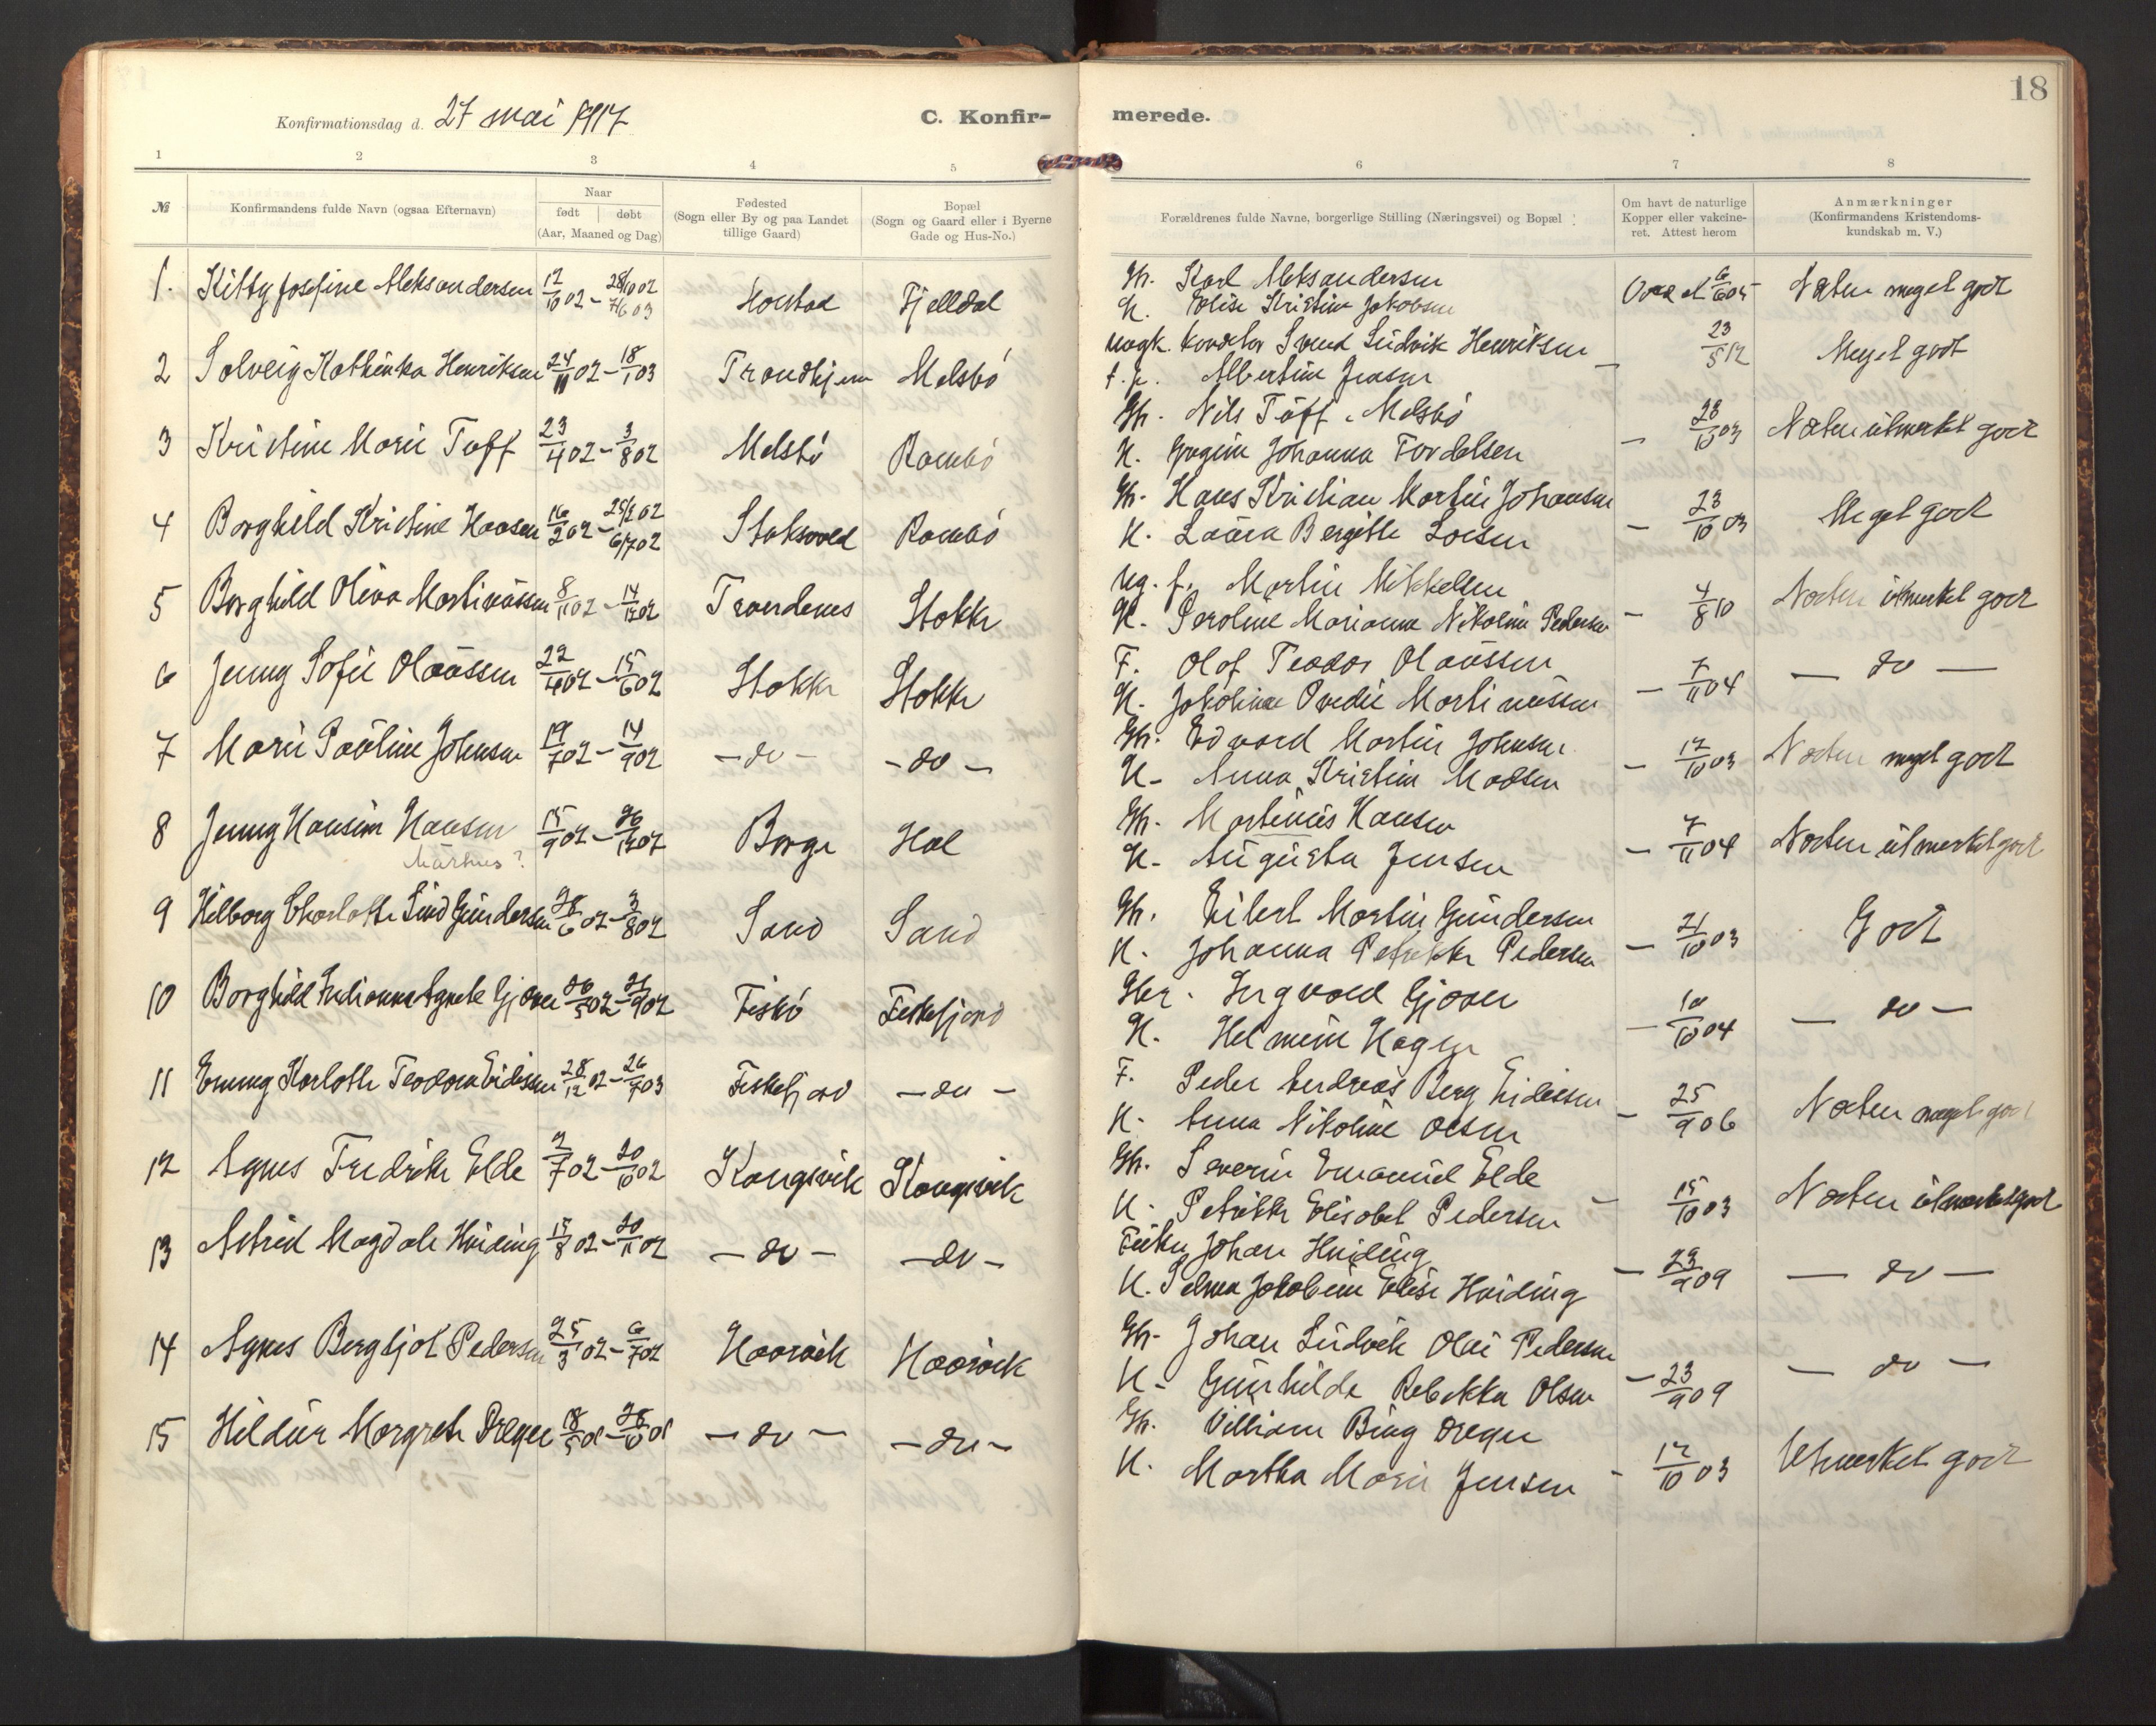 18
Konfirmationsdag d. 27 mai 1917
C. Konfirmerede.
1 2 3 4 5 6 7 8
№
Konfirmandens fulde Navn (ogsaa Efternavn)
Naar
født døbt
(Aar, Maaned og Dag)
Fødested
(Sogn eller By og paa Landet
tillige Gaard)
Bopæl
(Sogn og Gaard eller i Byerne
Gade og Hus-No.)
Forældrenes fulde Navne, borgerlige Stilling (Næringsvei) og Bopæl
Om havt de naturlige
Kopper eller vakcine-
ret. Attest herom
Anmærkninger
(Konfirmandens Kristendoms-
kundskab m. V.)
1. Kitty Josefine Aleksandersen 12/10 02 - 28/10 02 7/6 03 Fjelldal
Gh. Karl Aleksandersen
K. Elise Kristine Jakobsen
Næsten meget godt
2 Solveig Kathinka Henriksen 24/11 02 - 18/1 03 Trondhjem Melsbö
Svend Ludvik Henriksen
Albertine Jensen
23/5 12 Meget godt
3 Kristine Marie Toff 23/4 02 - 3/8 02 Melsbö Rambö
Gh. Nils Toff. Melsbö
K. Johanna Fordelsen
- 28/10 03 Næsten utmerket godt
4 Borghild Kristine Hansen 16/2 02 - 25/2 02 6/7 02 Stoksvold Rambö
Gh. Hans Kristian Martin Johansen
K. Laura Bergitte
- 23/10 03 Meget godt
5 Borghild Oliva Martinussen 8/11 02 - 14/12 02 Trondenes Stokke
Ug. f. Martin Mikkelsen
K. Seroline Marianne Nikoline Pedersen
- 4/8 10 Næsten utmerket godt
6 Jenny Sofie Olaussen 22/4 02 - 15/6 02 Stokke Stokke
F. Olaf Teodor Olaussen
K. Jakobine Ovedie Martinussen
- 7/11 04 - do -
7 Marie Pauline Johnsen 19/7 02 - 14/9 02 - do - - do -
Gh. Edvard Martin Johnsen
K. Anna Kristine Madsen
- 12/10 03 Næsten meget godt
8 Jenny Hansine Hansen 15/9 02 - 26/12 02 Borge Hol
Aarhus?
Gh. Martinus Hansen
K. Augusta Jensen
- 7/11 04 Næsten utmerket godt
9 Hilborg Charlotte Lind Gundersen 28/6 02 - 3/8 02 Sand Sand
Gh. Eilert Martin Gundersen
K. Johanna Petrikke Pedersen
- 21/10 03 Godt
10 Borghild Agnete Gjøvær 26/5 02 - 21/9 02 Fiskö Fiskefjord
Gbr. Ingvald Gjøvær
K. Helmine Hagen
- 10/10 04 - do -
11 Emmy Karlotte Teodora Eidissen 28/12 02 - 26/7 03 Fiskefjord - do -
F. Peder Andreas Berg Eidissen
K. Anna Nikoline Olsen
- 25/9 06 Næsten meget godt
12 Agnes Fredrikke Elde 2/7 02 - 20/10 02 Kongsvik Kongsvik
Gh. Severin Emanuel Elde
K. Petrikke Elisabet Pedersen
- 15/10 03 Næsten utmerket godt
13 Astrid Magdale Hviding 15/8 02 - 20/11 02 - do - - do -
Johan Hviding
K. Selma Jakobine Elise Hviding
- 23/9 09 - do -
14 Agnes Bergljot Pedersen 25/3 02 - 6/7 02 Haarvik Haarvik
Gh. Johan Ludvik Olai Pedersen
K. Gunhilda Rebekka Olsen
- 23/9 09 - do -
15 Hildur Margrete Dreyer 18/5 01 - 28/10 01 - do - - do -
Gh. Villiam Bing Dreyer
K. Martha Marie Jensen
- 12/10 03 Utmerket godt